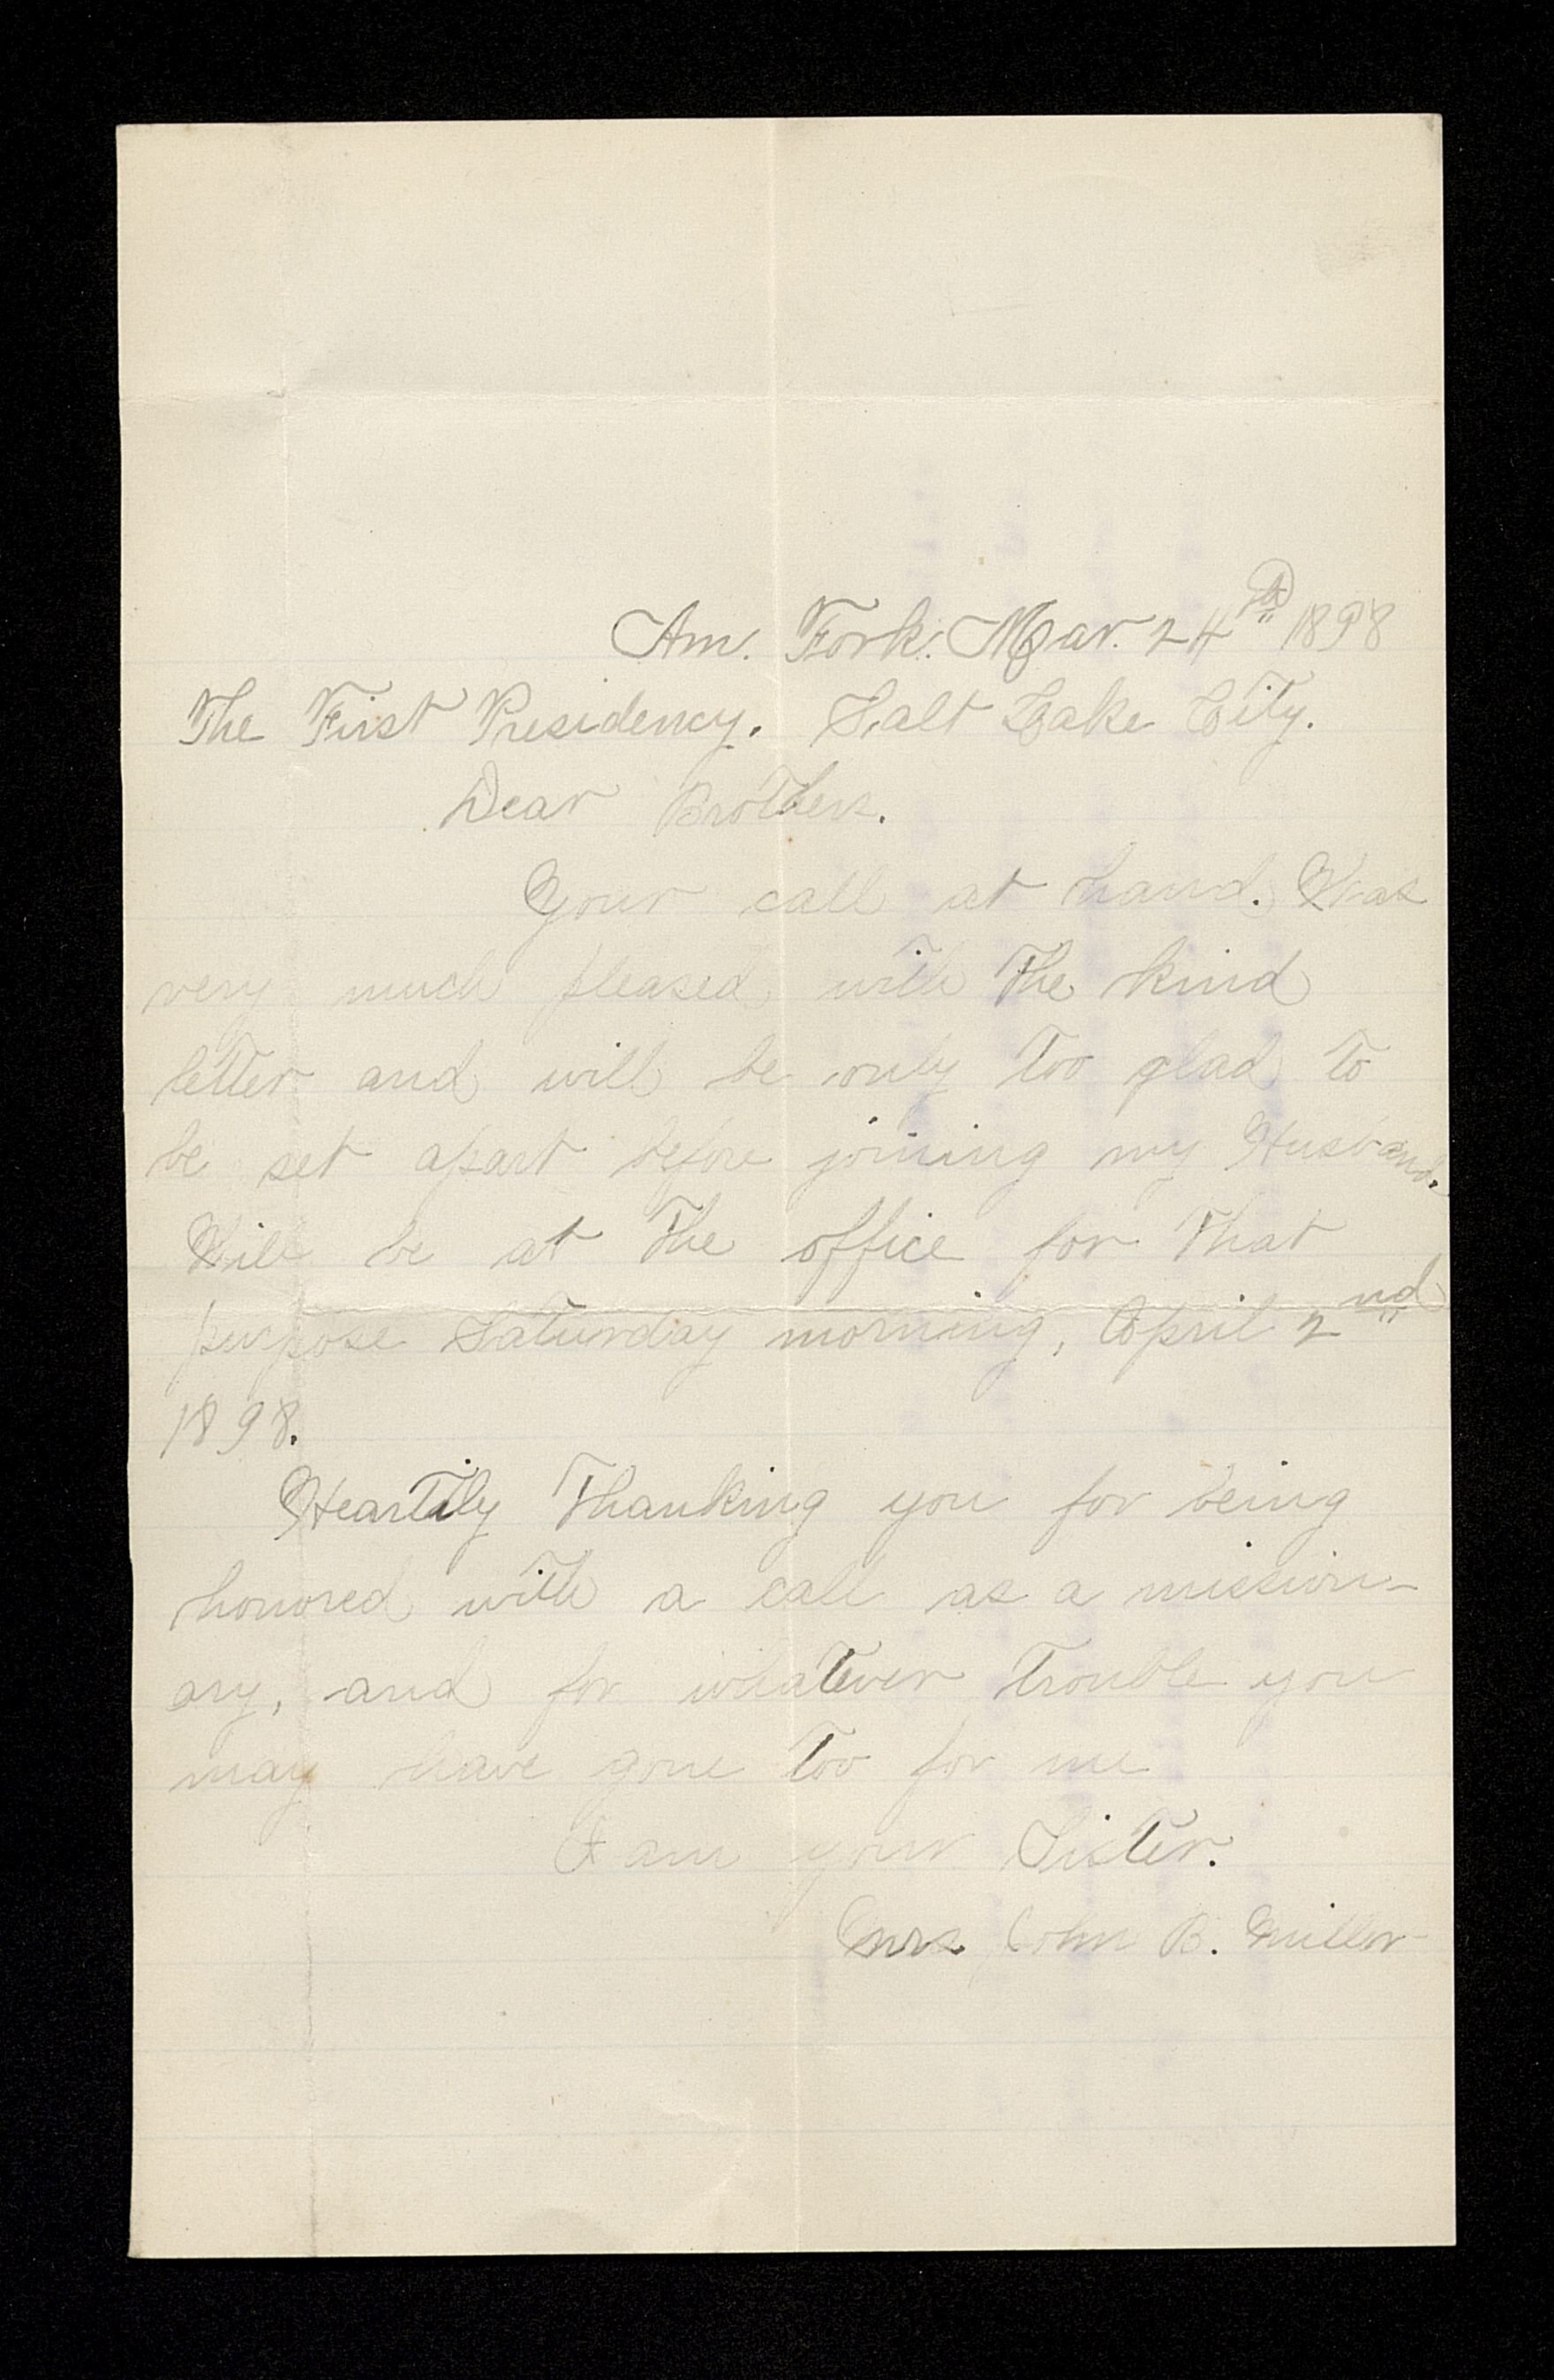 Am. Fork. Mar. 24th 1898
The First Presidency. Salt Lake City.
Dear Brothers.
Your call at hand. Was
very much pleased with the kind
letter and will be only too glad to
be set apart before joining my Husband.
Will be at the office for that
purpose Saturday morning, April 2nd
1898.
Heartily Thanking you for being
honored with a call as a mission-
ary, and for whatever trouble you
may have gone too for me
I am your Sister.
Mrs John B. Miller